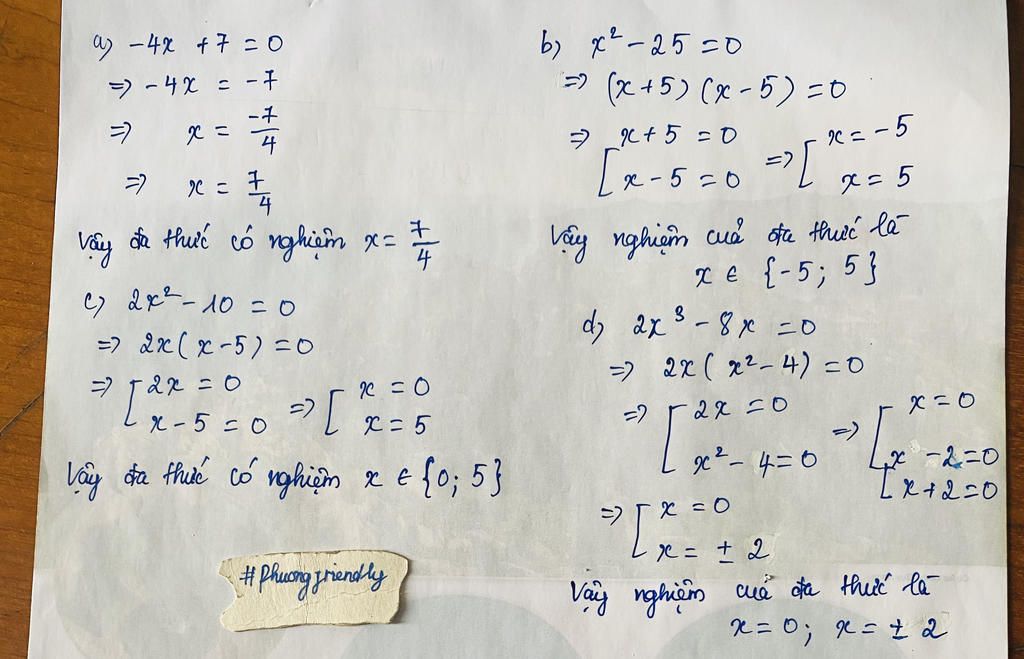 a) -4x + 7 = 0
=> -4x = -7
=> x = -7/4
=> x = 7/4
Vậy đa thức có nghiệm x = 7/4
c) 2x² - 10 = 0
=> 2x(x-5) = 0
=> [2x = 0 => [x = 0
x - 5 = 0 x = 5
Vậy đa thức có nghiệm x ∈ {0; 5}
#Phuongfriendly
b) x² - 25 = 0
=> (x+5)(x-5) = 0
=> [x + 5 = 0 => [x = -5
x - 5 = 0 x = 5
Vậy nghiệm cuả đa thức là
x ∈ {-5; 5}
d) 2x³ - 8x = 0
=> 2x(x² - 4) = 0
=> [2x = 0 => [x = 0
x² - 4 = 0 [x - 2 = 0
x + 2 = 0
=> [x = 0
x = ± 2
Vậy nghiệm cuả đa thức là
x = 0; x = ± 2